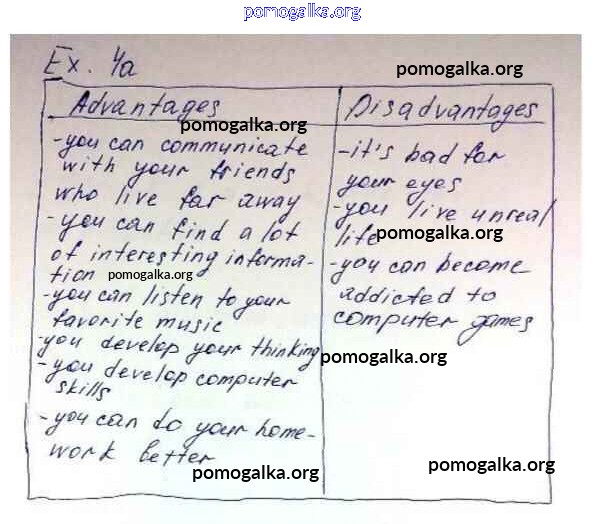 pomogalka.org
Ex. 4a
pomogalka.org
Advantages
pomogalka.org
-you can communicate
with your friends
who live far away
-you can find a lot
of interesting informa-
tion
pomogalka.org
-you can listen to your
favorite music
-you develop your thinking
-you develop computer
skills
-you can do your home-
work better
pomogalka.org
Disadvantages
-it's bad for
your eyes
-you live unreal
life
pomogalka.org
-you can become
addicted to
computer games
pomogalka.org
pomogalka.org